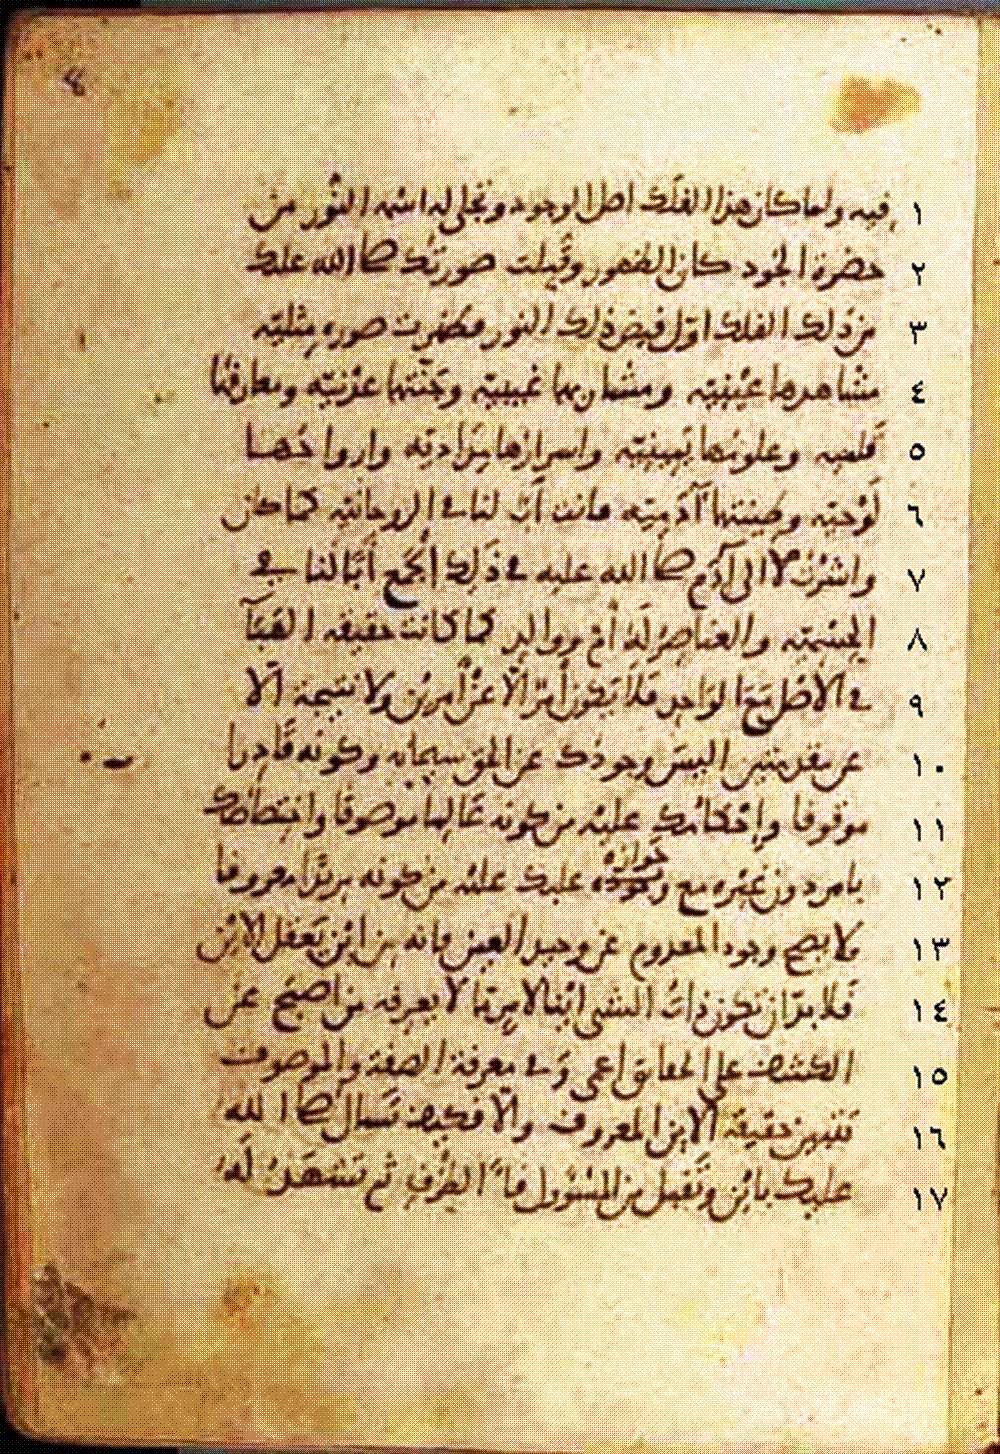 ٤
١ فيه ولما كان هذا الفلك اصل الوجود وتجلى له اسمه النور من
٢ حضرة الجود كان الظهور وقبلت صورتك صلى الله عليك
٣ من ذلك الفلك اول فيض ذلك النور فظهرت صورة مثلية
٤ مشاهدها عينية ومشاربها غيبية وجنتها عدنية ومعارفها
٥ قلمية وعلومها يمينية واسرارها مدادية وارواحها
٦ لوحية وطينتها آدمية فانت اب لنا في الروحانية كما كان
٧ واشرت الى آدم صلى الله عليه في ذلك الجمع أبا لنا في
٨ الجسمية والعناصر له أم ووالد كما كانت حقيقة الهبآ
٩ في الاصل مع الواحد فلا يكون أمر الا عن أمرين ولا نتيجة الا
١٠ عن مقدمتين اليس وجودك عن الحق سبحانه وكونه قادرا
١١ موقوفا وإحكامك عليه من كونه عالما موصوفا واختصاصك
١٢ بامر دون غيره مع جوازه عليك عليه من كونه مريدا معروفا
١٣ فلا يصح وجود المعدوم عن وحيد العين فانه من اين يعقل الاين
١٤ فلا بد ان تكون ذات الشي اينا لامر ما لا يعرفه من اصبح عن
١٥ الكشف على الحقايق اعمى وفي معرفة الصفة والموصوف
١٦ تتبين حقيقة الاين المعروف والا فكيف تسال صلى الله
١٧ عليك باين وتقبل من المسؤول فا الظرف ثم تشهد له